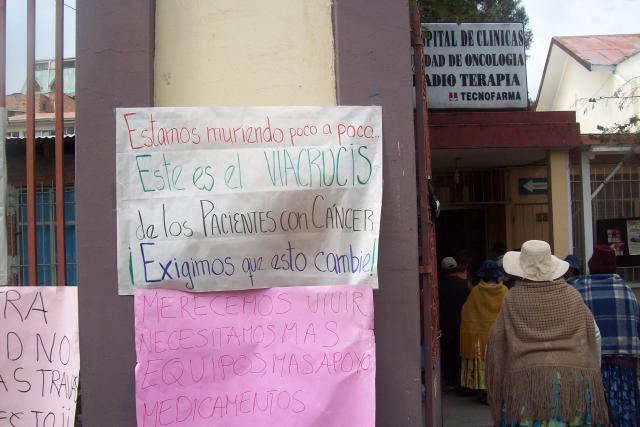 Estamos muriendo poco a poco...
Este es el VIACRUCIS
de los PACIENTES con CÁNCER
¡Exigimos que esto cambie!
MERECEMOS VIVIR
NECESITAMOS MAS
EQUIPOS MAS APOYO
MEDICAMENTOS
PITAL DE CLINICAS
DAD DE ONCOLOGIA
ADIO TERAPIA
TECNOFARMA
RA
O NO
AS TRA